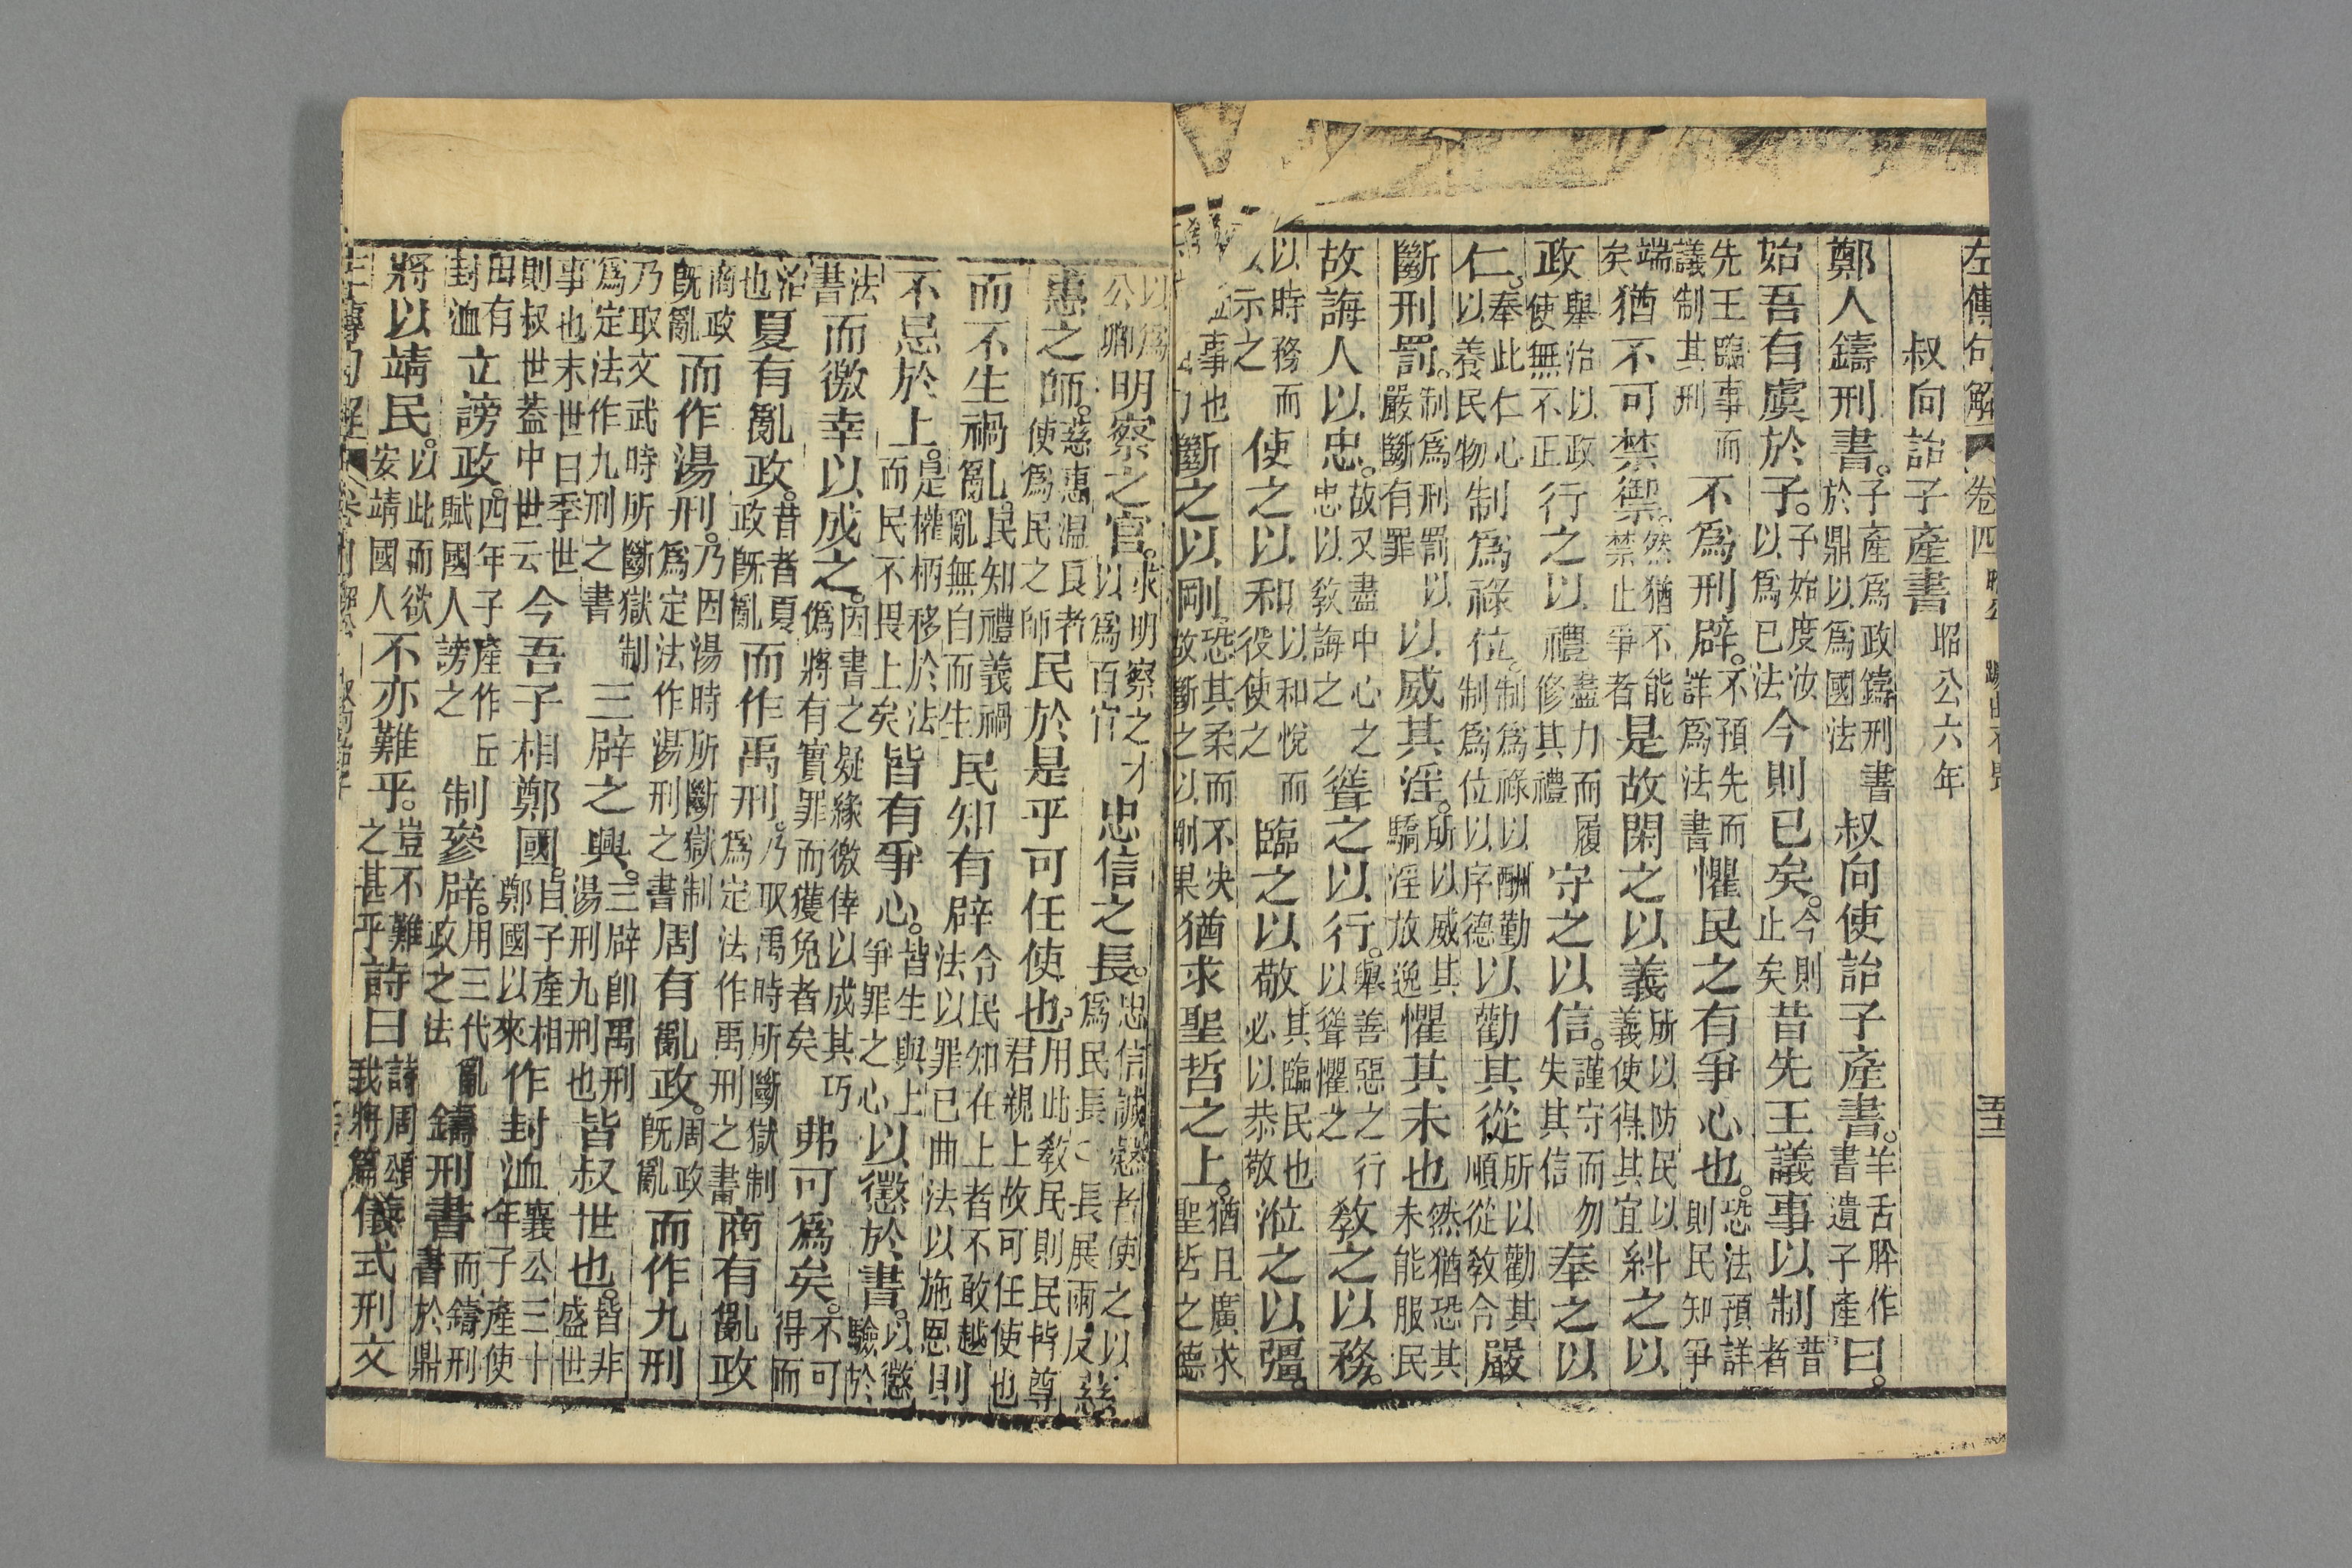 左傳句解　卷四
叔向詒子產書　昭公六年
鄭人鑄刑書。子產爲政鑄刑書於鼎以爲國法叔向使詒子產書。羊舌肸作書遺子產曰。
始吾有虞於子。子始度汝以爲已法今則已矣。今則止矣昔先王議事以制昔者
先王臨事而議制其刑不爲刑辟。不預先而詳爲法書懼民之有爭心也。恐法預詳則民知爭
端矣猶不可禁禦。然猶不能禁止爭者是故閑之以義所以防民以義使得其宜糾之以
政舉治以政使無不正行之以禮盡力而履修其禮守之以信。謹守而勿失其信奉之以
仁。奉此仁心以養民物制爲祿位。制爲祿以酬勤制爲位以序德以勸其從所以勸其順從敎令嚴
斷刑罰。制爲刑罰以嚴斷有罪以威其淫。所以威其驕淫放逸懼其未也然猶恐其未能服民
故誨人以忠。故又盡中心之忠以敎誨之聳之以行。舉善惡之行以聳懼之敎之以務。
以時務而示之使之以和以和悅而役使之臨之以敬其臨民也必以恭敬涖之以彊。
事也斷之以剛。恐其柔而不决故斷之以剛果猶求聖哲之上。猶且廣求聖哲之德
以爲公卿明察之官。求明察之才以爲百官忠信之長。忠信誠慤者使之以爲民長長展兩反慈
惠之師。慈惠温良者使爲民之師民於是乎可任使也。用此敎民則民皆尊君親上故可任使也
而不生禍亂。民知禮義禍亂無自而生民知有辟令民知在上者不敢越法以罪已曲法以施恩則
不忌於上。是權柄移於法而民不畏上矣皆有爭心。皆生與上爭罪之心以懲於書。以懲驗於
法書而徼幸以成之。因書之疑緣徼倖以成其巧僞將有實罪而獲免者矣弗可爲矣。不可得而
治也夏有亂政。昔者夏政旣亂而作禹刑。乃取禹時所斷獄制爲定法作禹刑之書商有亂政
商政旣亂而作湯刑。乃因湯時所斷獄制爲定法作湯刑之書周有亂政。周政旣亂而作九刑
乃取文武時所斷獄制爲定法作九刑之書三辟之興。三辟卽禹刑湯刑九刑也皆叔世也。皆非盛世
事也末世曰季世則叔世蓋中世云今吾子相鄭國。自子產相鄭國以來作封洫襄公三十年子產使
田有封洫立謗政。四年子產作丘賦國人謗之制參辟。用三代亂政之法鑄刑書而鑄刑書於鼎
將以靖民。以此而欲安靖國人不亦難乎。豈不難之甚乎詩曰詩周頌我將篇儀式刑文